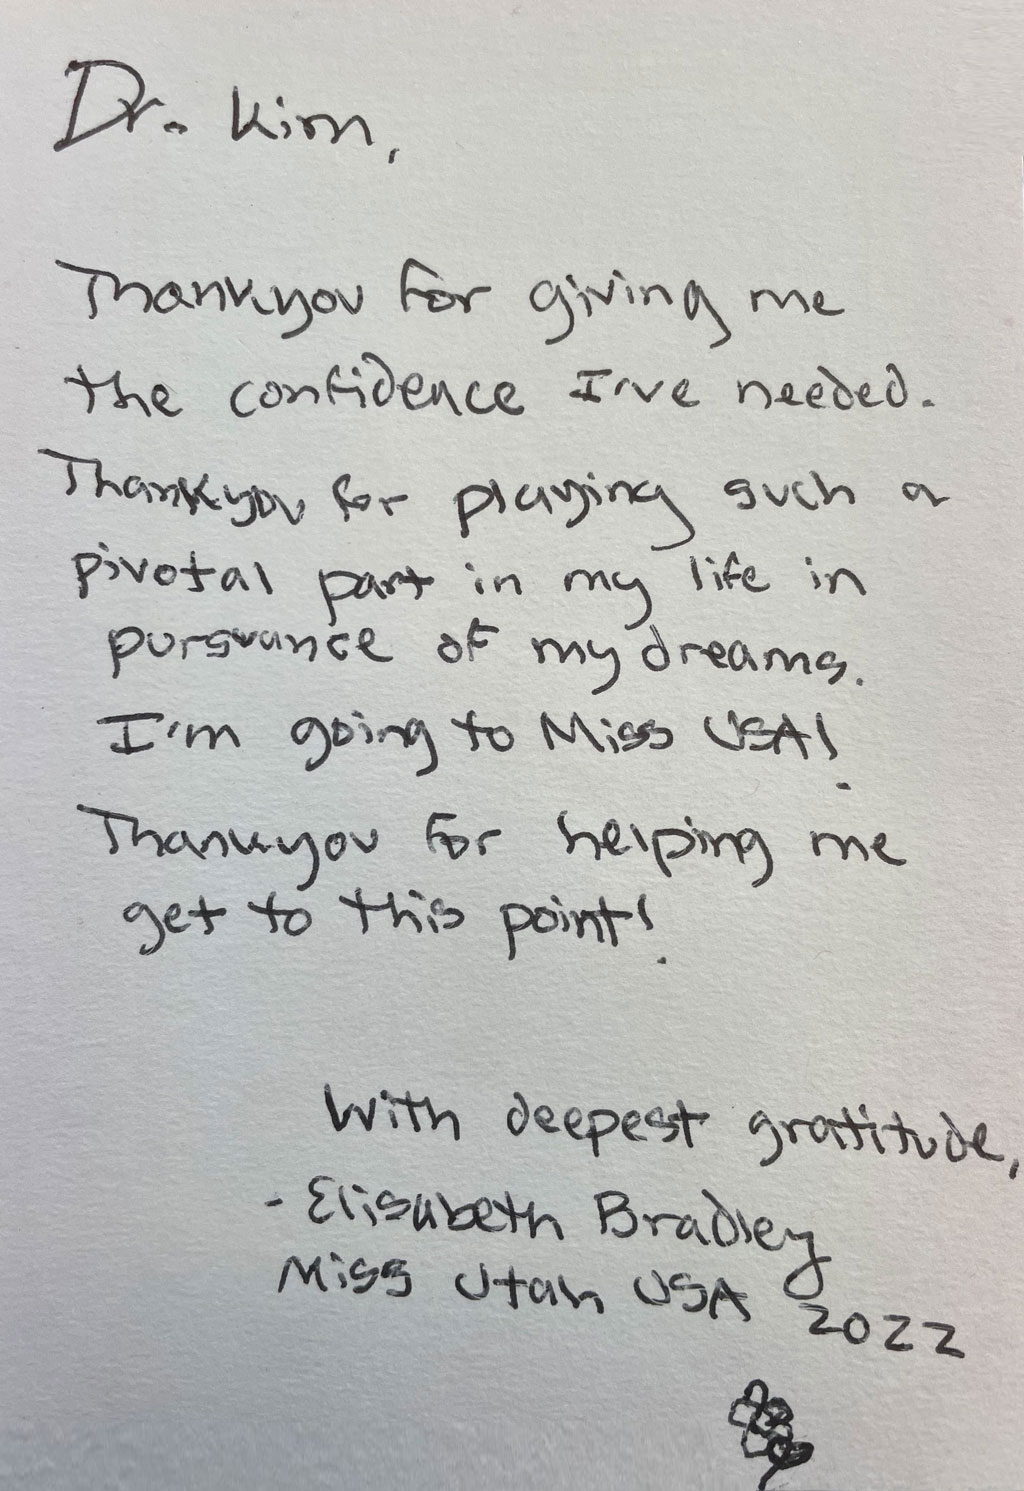 Dr. Kim,
Thankyou for giving me
the confidence I've needed.
Thankyou for playing such a
pivotal part in my life in
pursuance of my dreams.
I'm going to Miss USA!
Thankyou for helping me
get to this point!
With deepest gratitude,
- Elisabeth Bradley
Miss Utah USA 2022